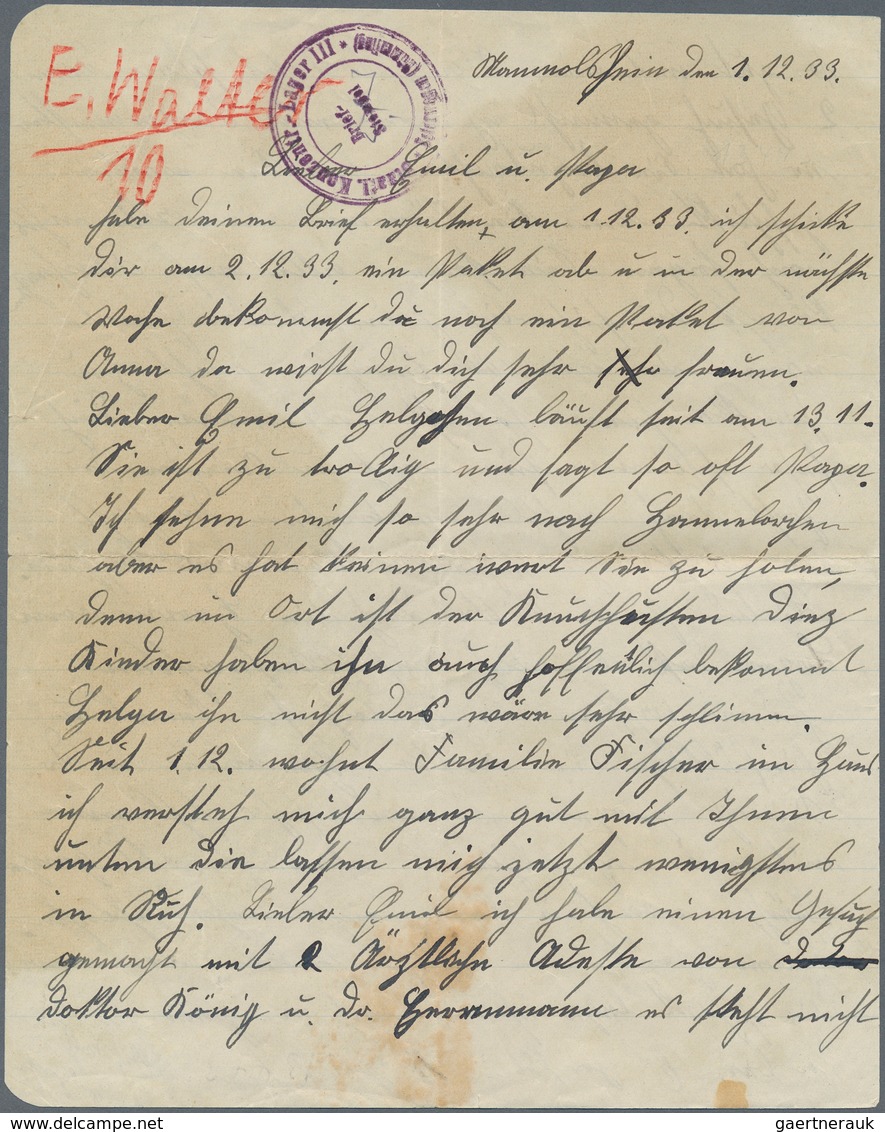 E. Walter
10
Staatl. Konzentr.-Lager III
Brief-
Stempel
Mammolshein den 1.12.33.
Lieber Emil u. Papa
habe deinen Brief erhalten, am 1.12.33. ich schicke
dir am 2.12.33. ein Paket ab u in der nächste
Woche bekommst du noch ein Paket von
Anna da wirst du dich sehr sehr freuen.
Lieber Emil Helgchen läuft seit am 13.11.
Sie ist zu trollig und sagt so oft Papa.
Ich sehne mich so sehr nach Hannelorchen
aber es hat keinen wert Sie zu holen,
denn im Ort ist der Keuchhusten
Kinder haben ihn auch hoffentlich bekommt
Helga ihn nicht das wäre sehr schlimm.
Seit 1.12. wohnt Familie Fischer im Haus
ich versteh mich ganz gut mit Ihnen
unten die lassen mich jetzt wenigstens
in Ruh. Lieber Emil ich habe einen Gesuch
gemacht mit 2 Ärztliche Adeste von
doktor König u. Dr. Herrnmann es steht nicht
gaertnerauk